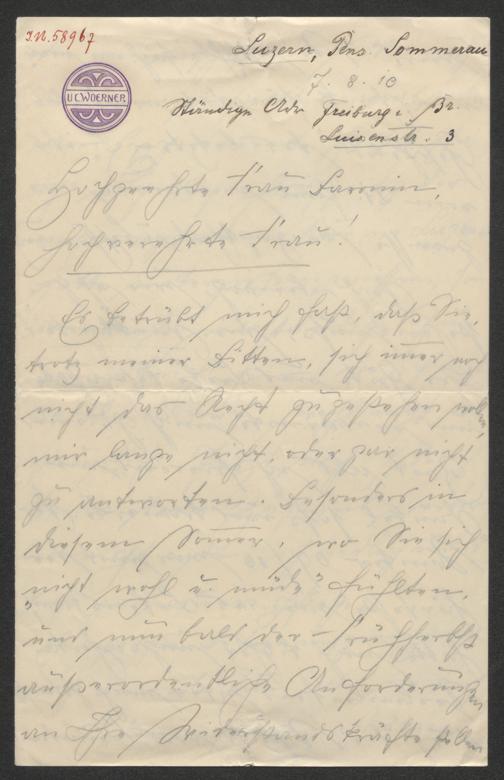 I.N. 58967
Luzern, Pens. Sommerau
7. 8. 10
U.C.WOERNER
Ständige Adr Freiburg i. Br.
Luisenstr. 3
Hochgeehrte Frau Baronin,
hochverehrte Frau!
Es betrübt mich fast, daß Sie,
trotz meiner Bitten, sich immer noch
nicht das Recht zugestehen wollen,
mir lange nicht, oder gar nicht
zu antworten. Besonders in
diesem Sommer, wo Sie sich
"nicht wohl u. müde" fühlten,
und nun bald der Frühherbst
außerordentliche Anforderungen
an Ihre Widerstandskräfte stellen